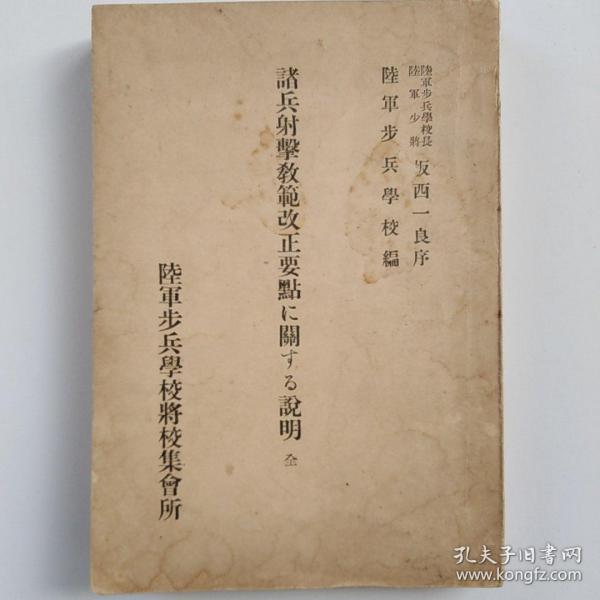 陸軍步兵學校長
陸軍少將
坂西一良序
陸軍步兵學校編
諸兵射擊敎範改正要點に關する說明 全
陸軍步兵學校將校集會所
孔夫子旧书网
www.kongfz.com